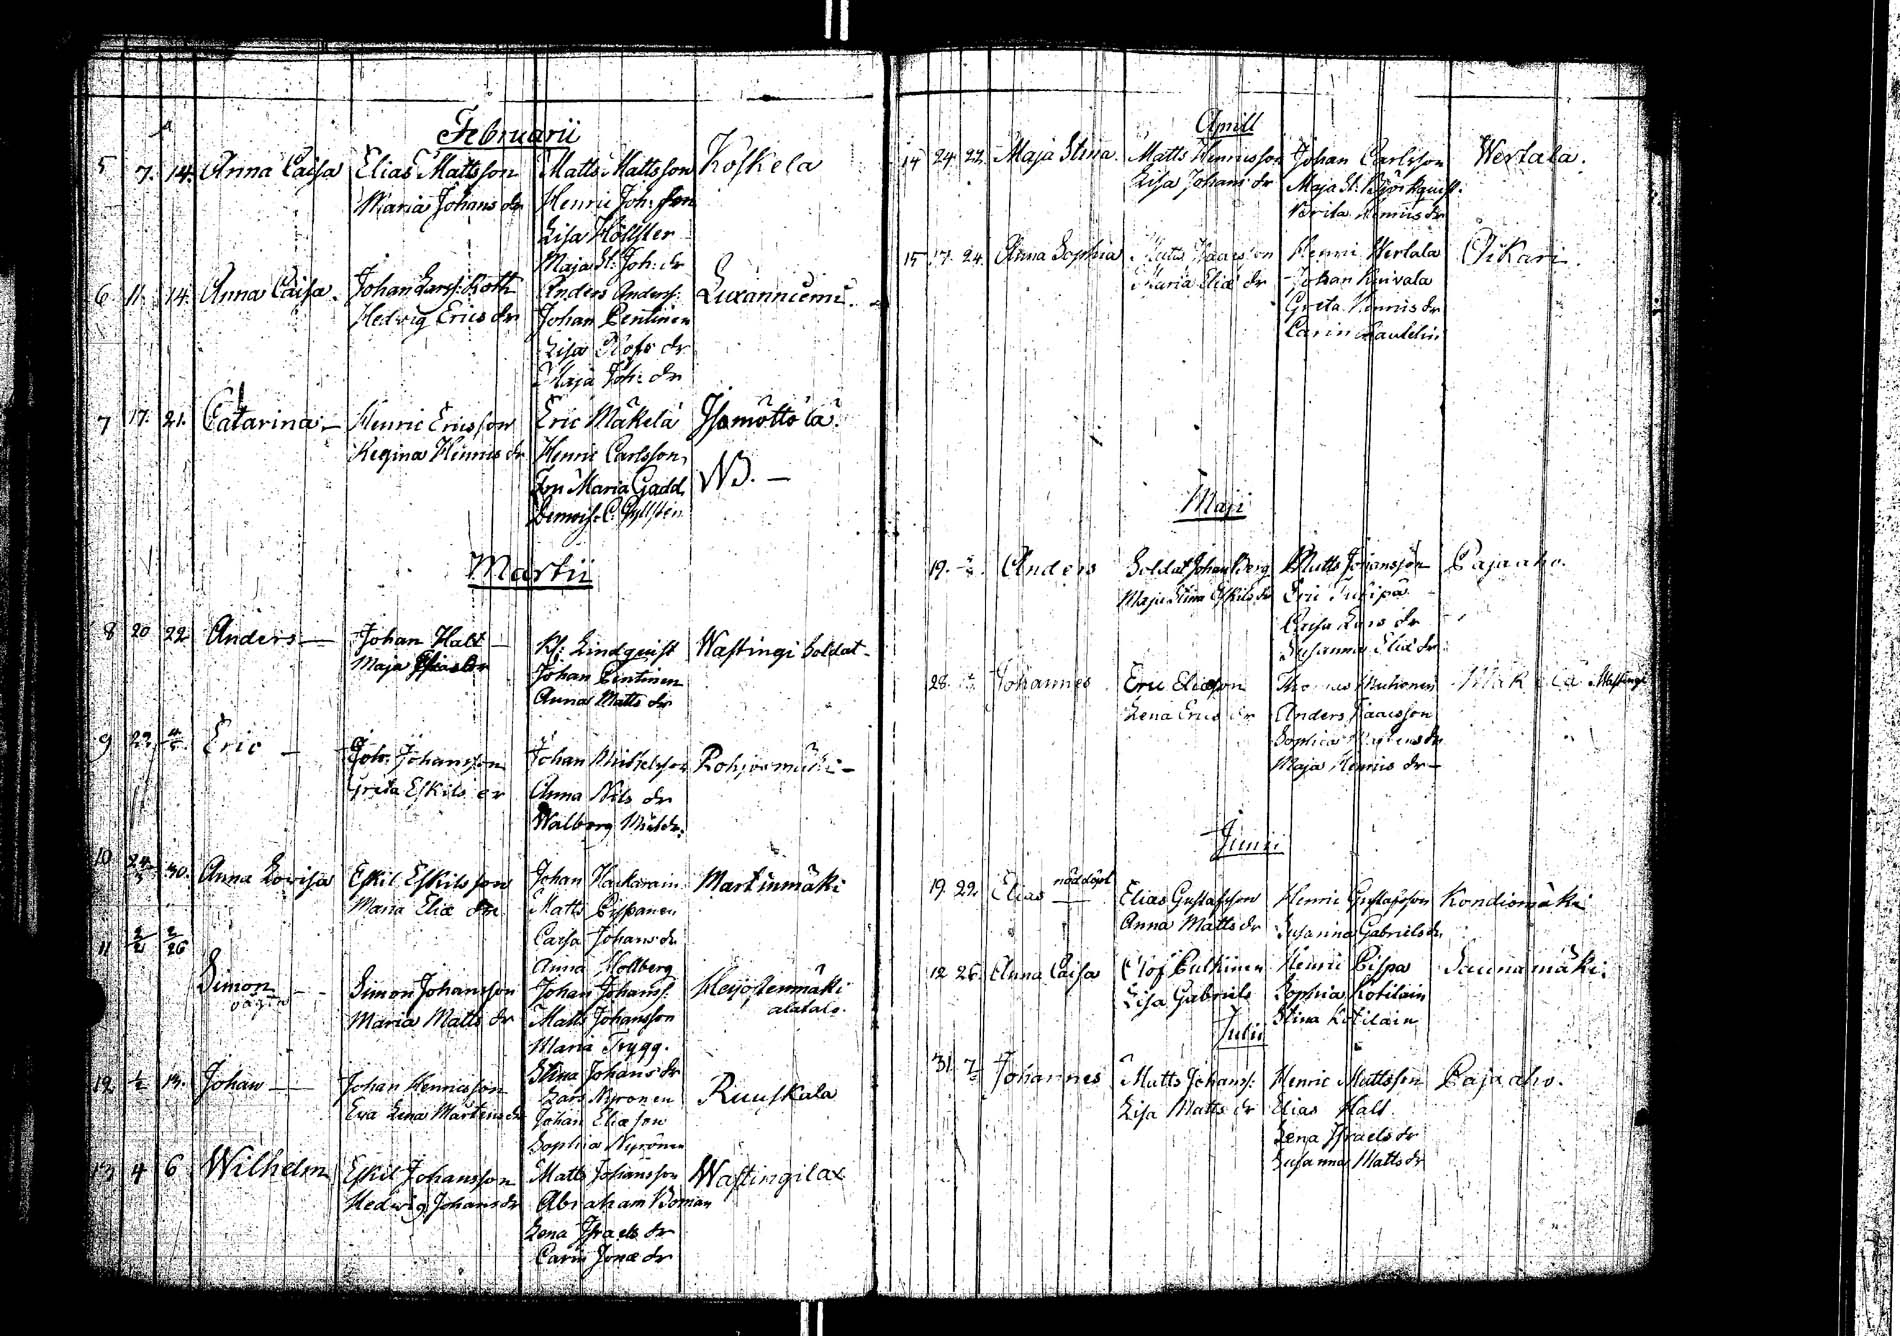 Februarii
5 7. 14. Anna Caisa Elias Mattsson Matts Mattsson Koskela
Maria Johans dr Henric Joh:sson
Lisa Hollster
Maja St: Joh: dr
6 11. 14. Anna Caisa. Johan Larss: Roth Anders Anderss: Luxanniemi.
Hedwig Erics dr Johan Pentinen
Lisa Olofs dr
Maja Joh: dr
7 17. 21. Catarina — Henric Ericsson Eric Mäkelä Isomöttölä.
Regina Henrics dr Henric Carlsson NB. —
Maria Gadd
Martii
8 20 22 Anders — Johan Halt — Lindquist Wastingi Soldat -
Maja Johan Pentinen
Anna Matts dr
9 22. Eric — Joh: Johansson Johan Michelsson Pohjosmäki -
Greta Eskils dr Anna Nils dr
Walborg
10 24 30. Anna Lovisa Eskil Eskilsson Johan Hackarain Martinmäki
Maria Eliæ dr Matts Pispanen
11 2/2 2/26 Caisa Johans dr
Anna Hollberg
Simon — Simon Johansson Johan Johanss: Heijostenmäki
Maria Matts dr Matts Johansson alatalo.
Maria Trygg.
Stina Johans dr
12. 13. Johan — Johan Henricsson Lars Nyronen Ruuskala
Eva Lena Mårtens dr Johan Eliæson
Sophia Nyrönen
13 4 6 Wilhelm Eskil Johansson Matts Johansson Wastingilax
Hedwig Johans dr Abraham Boman
Lena Israels dr
Carin Jonæ dr
Aprill
14 24 22. Maja Stina. Matts Henricsson Johan Carlsson Wertala.
Lisa Johans dr Maja St. Björkquist.
Brita Henrics dr
15 17. 24. Anna Sophia Matts Isaacsson Henric Wertala Oikari
Maria Eliæ dr Johan Knivala
Greta Henrics dr
Carin Lautelin
Maji
19. Anders Soldat Johan Berg Matts Johansson Pajaaho.
Maja Stina Eskils dr Eric
Caisa Lars dr
Susanna Eliæ dr
28. Johannes Eric Eliæson Thomas Muhonen Mäkelä Wastingi
Lena Erics dr Anders Isaacsson
Sophia Mårtens dr
Maja Henrics dr —
Junii
19. 22. Elias nöddöpt Elias Gustafsson Henric Gustafsson Kondismäki
Anna Matts dr Susanna Gabriels dr
12 26. Anna Caisa Olof Pulkinen Henric Pispa Saunamäki.
Lisa Gabriels Sophia Kotilain
Stina Kotilain
Julii
31. Johannes Matts Johanss: Henric Mattsson Pajaaho.
Lisa Matts dr Elias Halt
Lena Israels dr
Susanna Matts dr